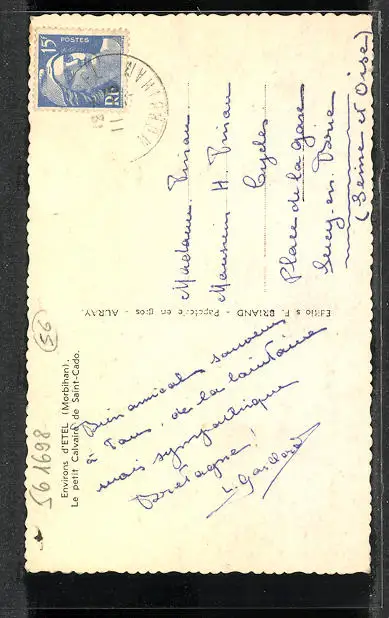 561698
56
Environs d'ETEL (Morbihan).
Le petit Calvaire de Saint-Cado.
Bien amical souvenir
à Tous, de la lointaine
mais sympathique
Bretagne!
Editions F. BRIAND - Papeterie en gros - AURAY.
POSTES
15F
RF
MORBIHAN
Madame
Monsieur H.
Cycles
Place de la gare
Sucy-en-Brie
(Seine et Oise)